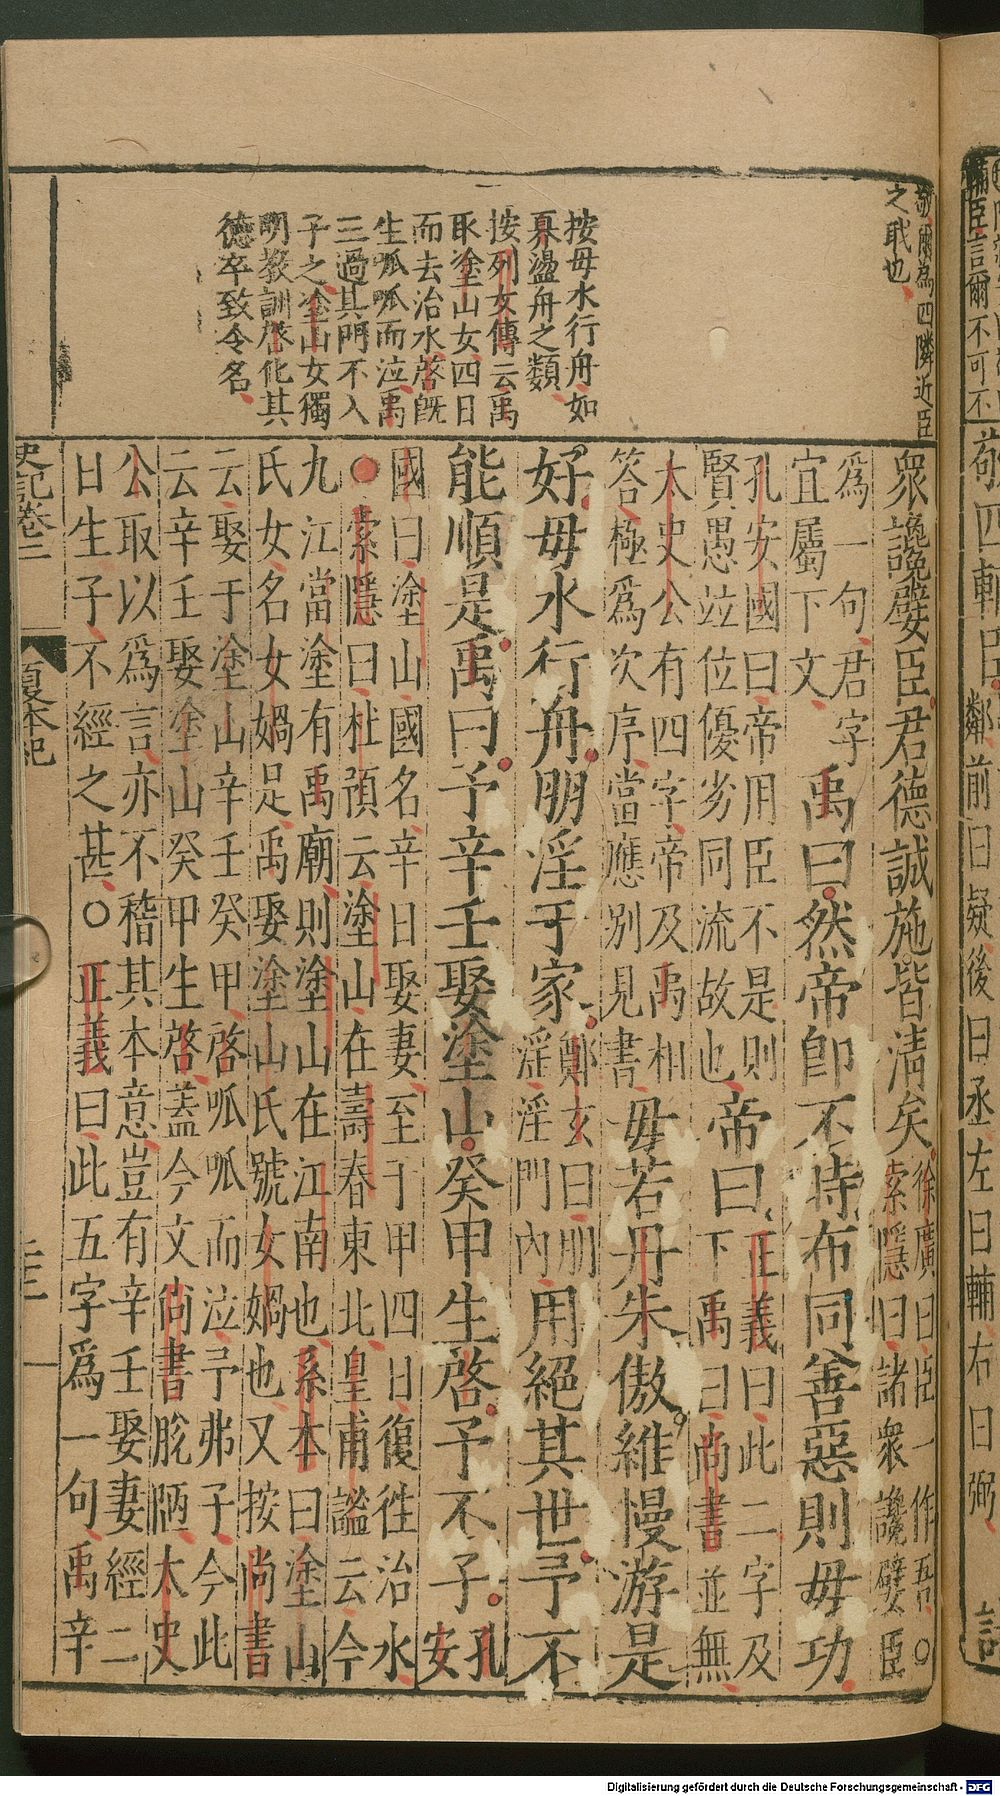 輔臣言爾不可不
敬四輔臣
鄰前曰疑後曰丞左曰輔右曰弼
敬爾為四隣近臣
之職也
按毋水行舟如
奡盪舟之類
按列女傳云禹
取塗山女四日
而去治水啓既
生呱呱而泣禹
三過其門不入
子之塗山女獨
明教訓啓化其
德卒致令名
衆讒嬖臣君德誠施皆清矣徐廣曰臣一作吾○
索隱曰諸衆讒嬖臣
爲一句君字
宜屬下文禹曰然帝卽不時布同善惡則毋功
孔安國曰帝用臣不是則
賢愚竝位優劣同流故也帝曰正義曰此二字及
下禹曰尚書並無
太史公有四字帝及禹相
答極爲次序當應別見書毋若丹朱傲維慢游是
好毋水行舟朋淫于家鄭玄曰朋
淫淫門內用絕其世予不
能順是禹曰予辛壬娶塗山癸甲生啓予不子孔
安
國曰塗山國名辛日娶妻至于甲四日復徃治水
●索隱曰杜預云塗山在壽春東北皇甫謐云今
九江當塗有禹廟則塗山在江南也系本曰塗山
氏女名女媧是禹娶塗山氏號女媧也又按尚書
云娶于塗山辛壬癸甲啓呱呱而泣予弗子今此
云辛壬娶塗山癸甲生啓蓋今文尚書脫陋太史
公取以爲言亦不稽其本意豈有辛壬娶妻經二
日生子不經之甚○正義曰此五字爲一句禹辛
史記卷二
夏本紀
Digitalisierung gefördert durch die Deutsche Forschungsgemeinschaft - DFG